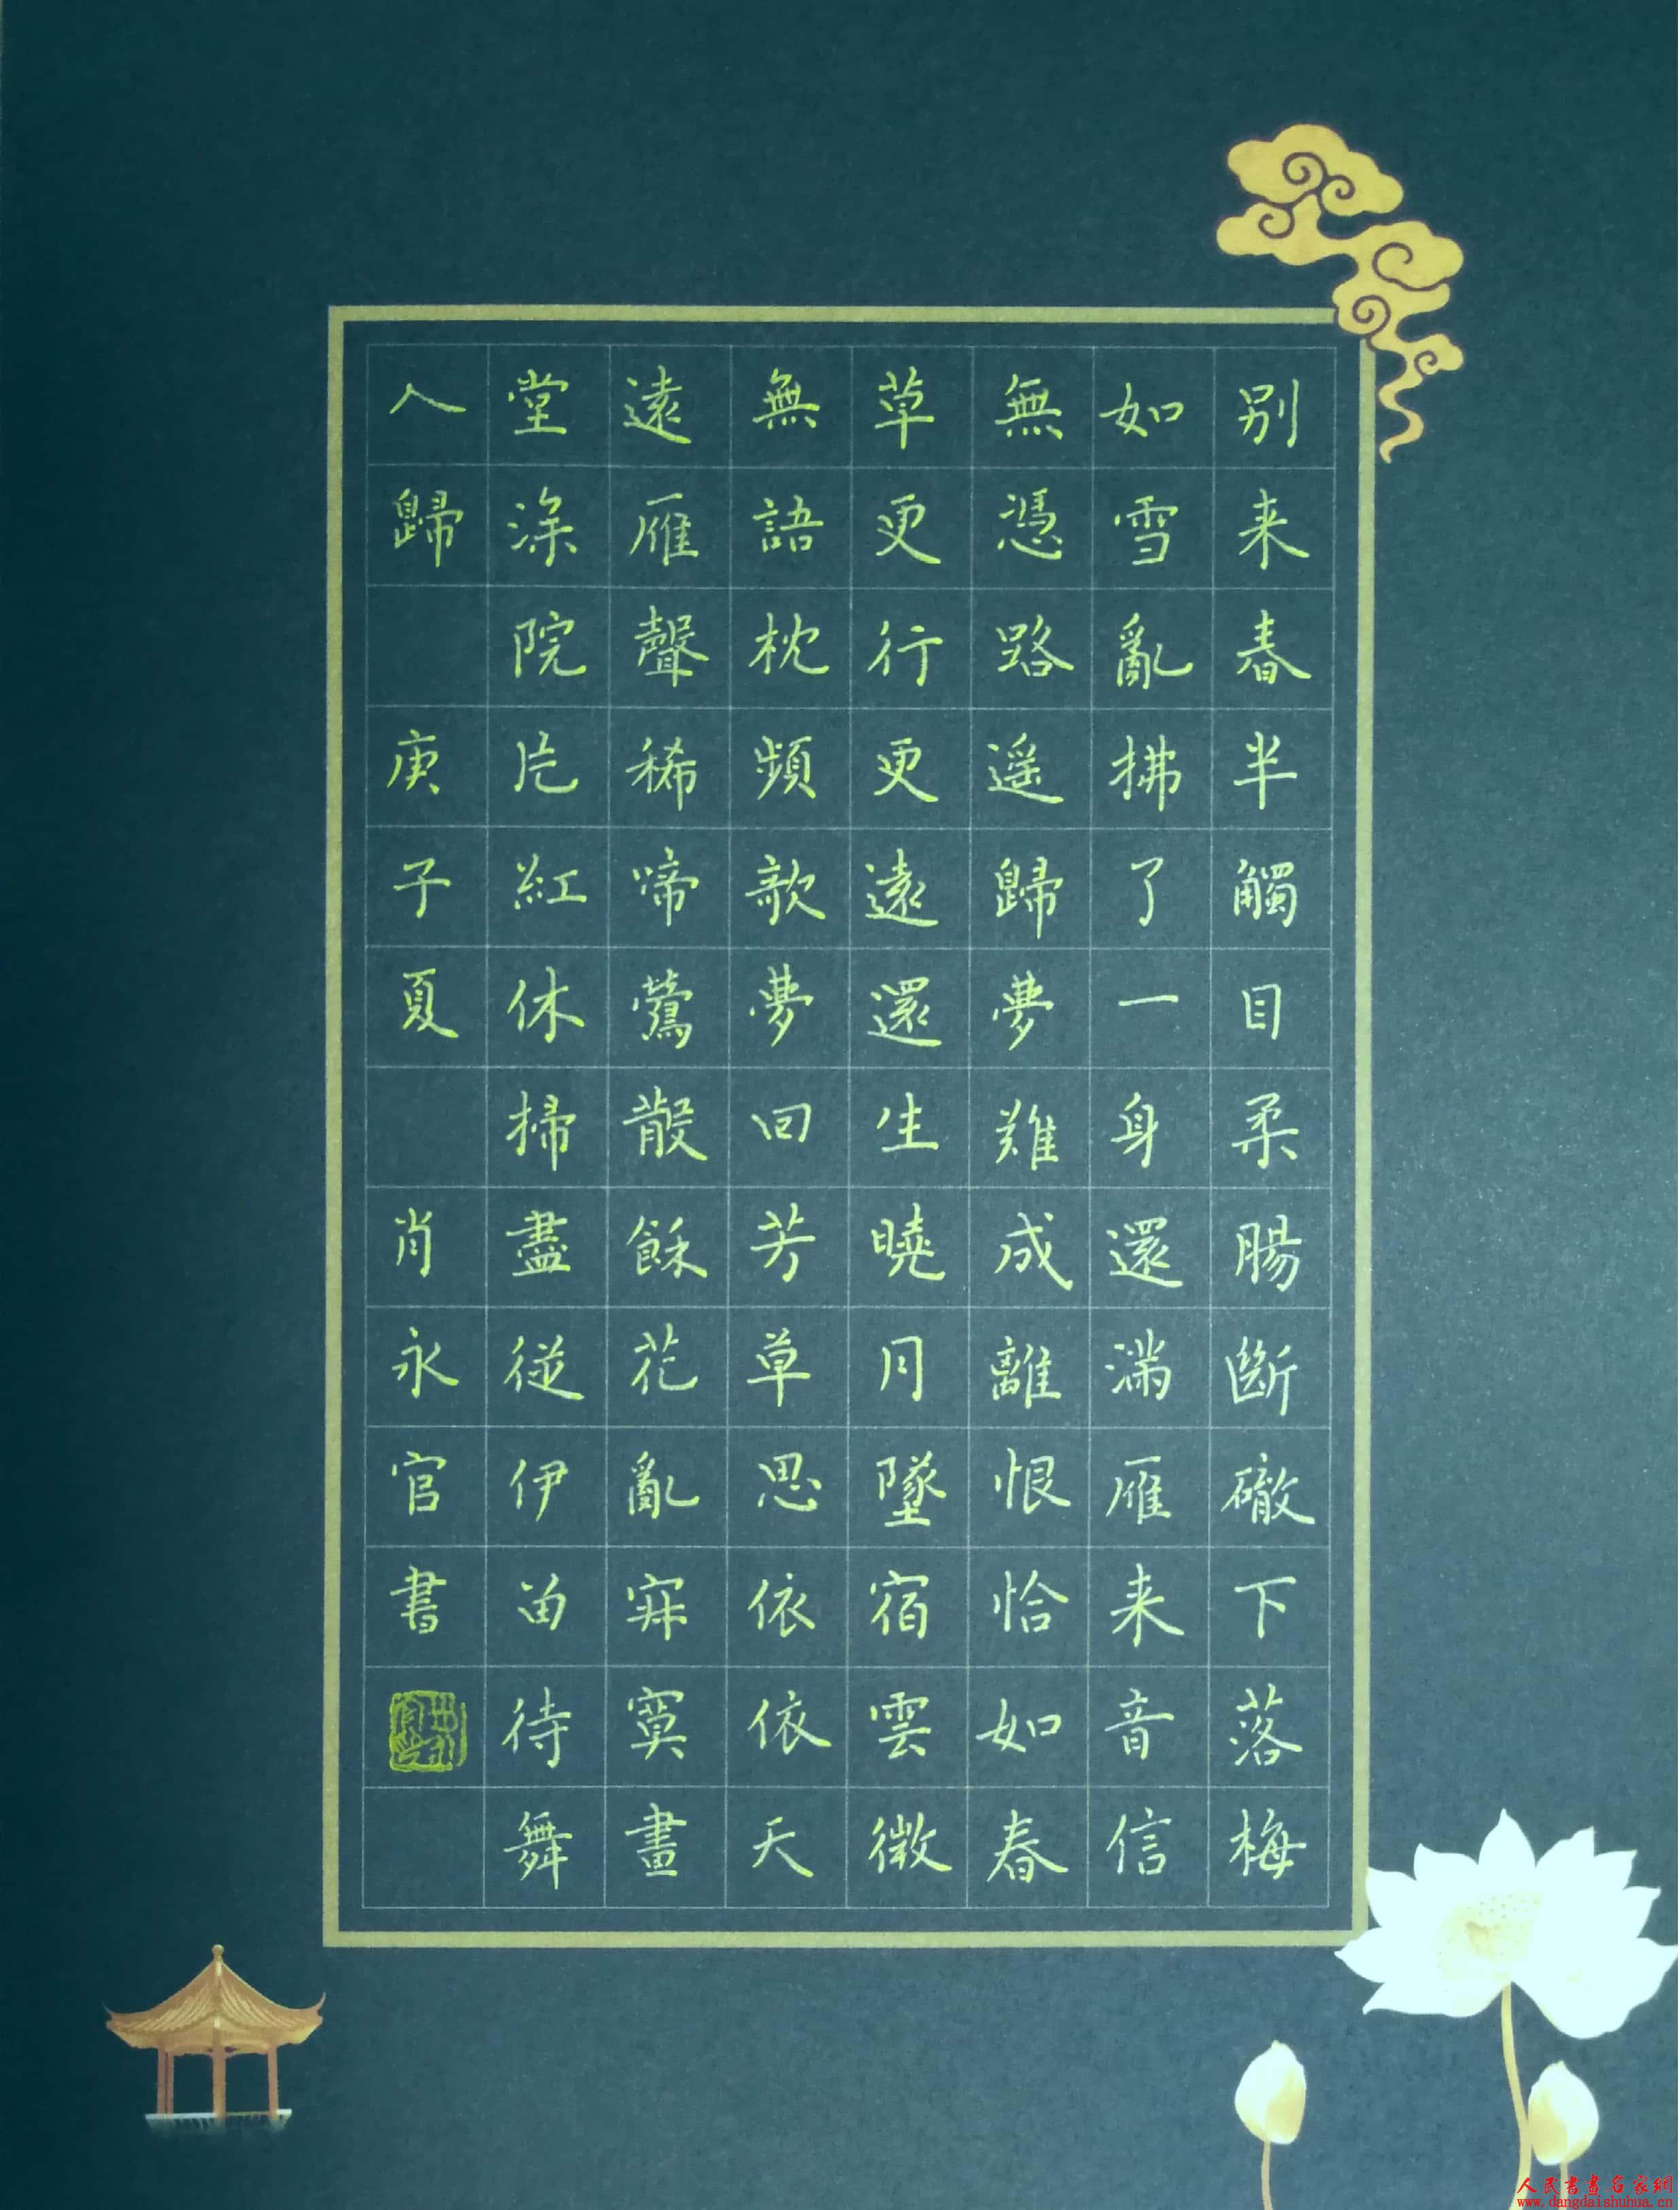 别来春半觸目柔腸斷䃘下落梅
如雪亂拂了一身還滿雁来音信
無憑路遥歸夢難成離恨恰如春
草更行更遠還生曉月墜宿雲微
無語枕頻欹夢回芳草思依依天
遠雁聲稀啼鶯散餘花亂寂寞畫
堂深院片紅休掃盡從伊留待舞
人歸 庚子夏 肖永官書
人民書畫名家網
www.dangdaishuhua.cn